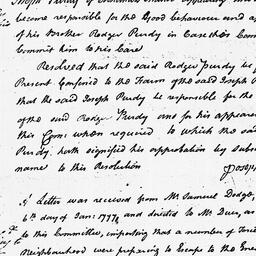 Joseph Purdy of
become responsible for the Good behaviour and a
of his Brother Rodger Purdy in Case this Com
Commit him to his Care
Resolved that the said Rodger Purdy be f
Present Confined to the Farm of the said Joseph
that the said Joseph Purdy be responsible for the
of the said Rodger Purdy and for his appearance
this Com: when required to which the said
Purdy, hath signified his approbation by subsc
name to this Resolution
Joseph
A Letter was received from Mr. Samuel Dodge,
6th day of Jan: 1776 and divided to Mr Duer, as
to this Committee, importing that a number of Tories
Neighbourhood were preparing to Escape to the Ene